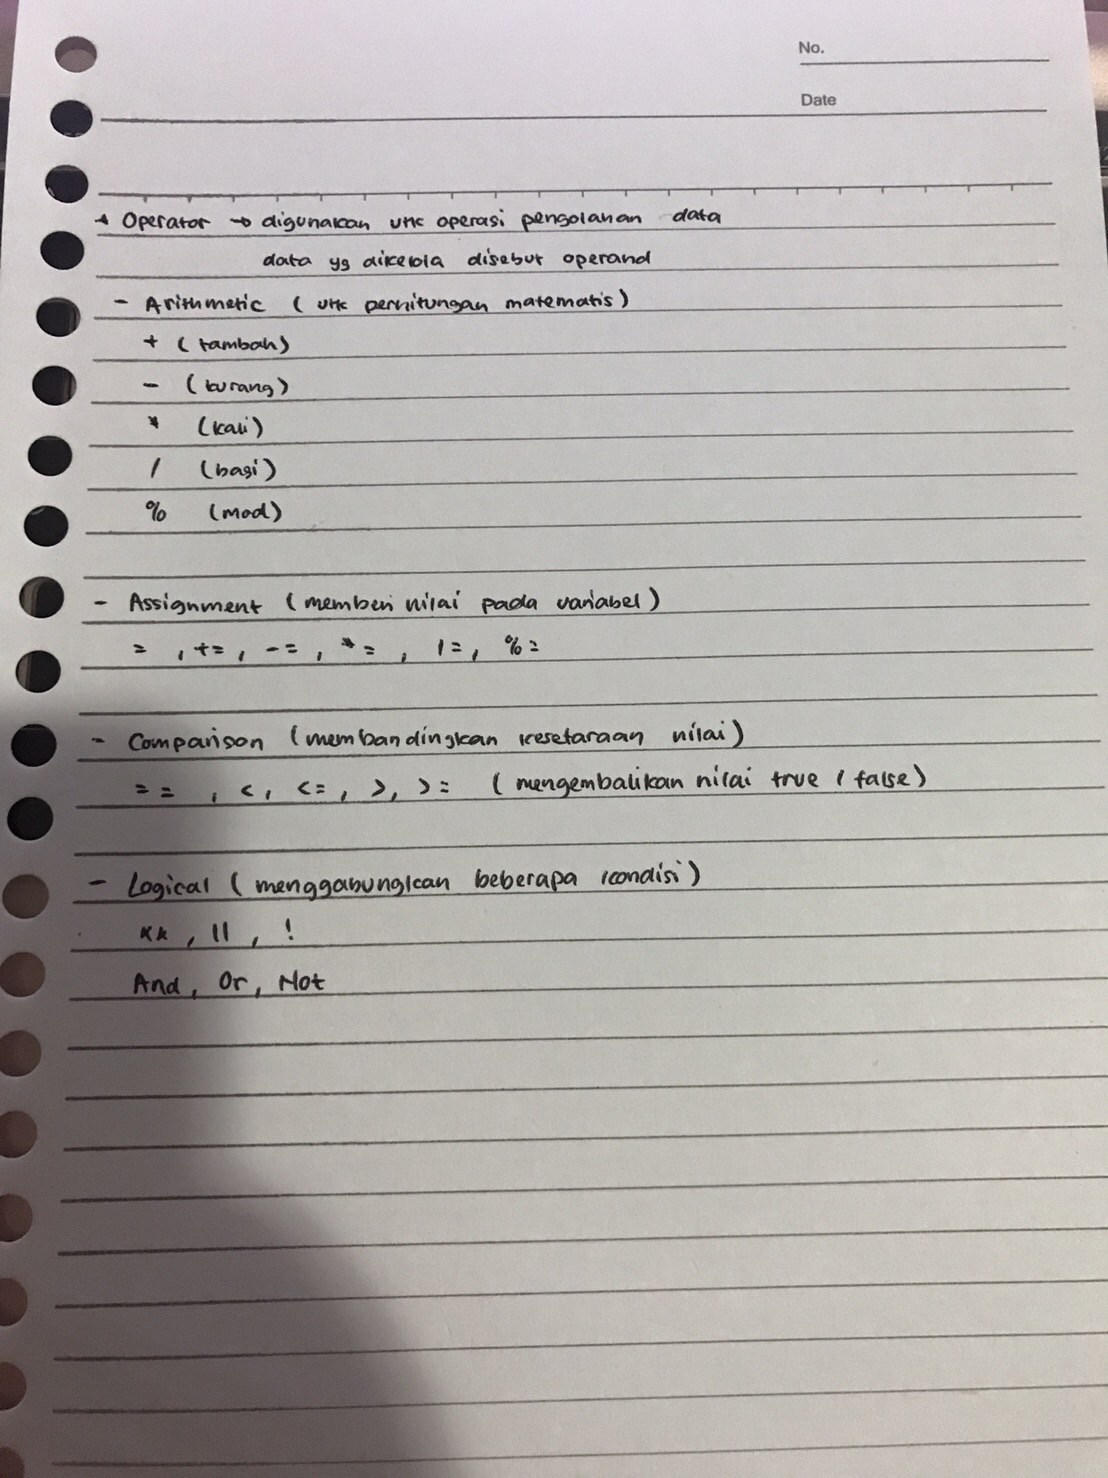 No.
Date
* Operator → digunakan utk operasi pengolahan data
data yg dikelola disebut operand
- Arithmetic (utk perhitungan matematis)
+ (tambah)
- (kurang)
* (kali)
/ (bagi)
% (mod)
- Assignment (memberi nilai pada variabel)
= , +=, -= , *= , /=, %=
- Comparison (membandingkan kesetaraan nilai)
== , <, <=, >, >= (mengembalikan nilai true / false)
- Logical (menggabungkan beberapa kondisi)
&& , || , !
And, Or, Not